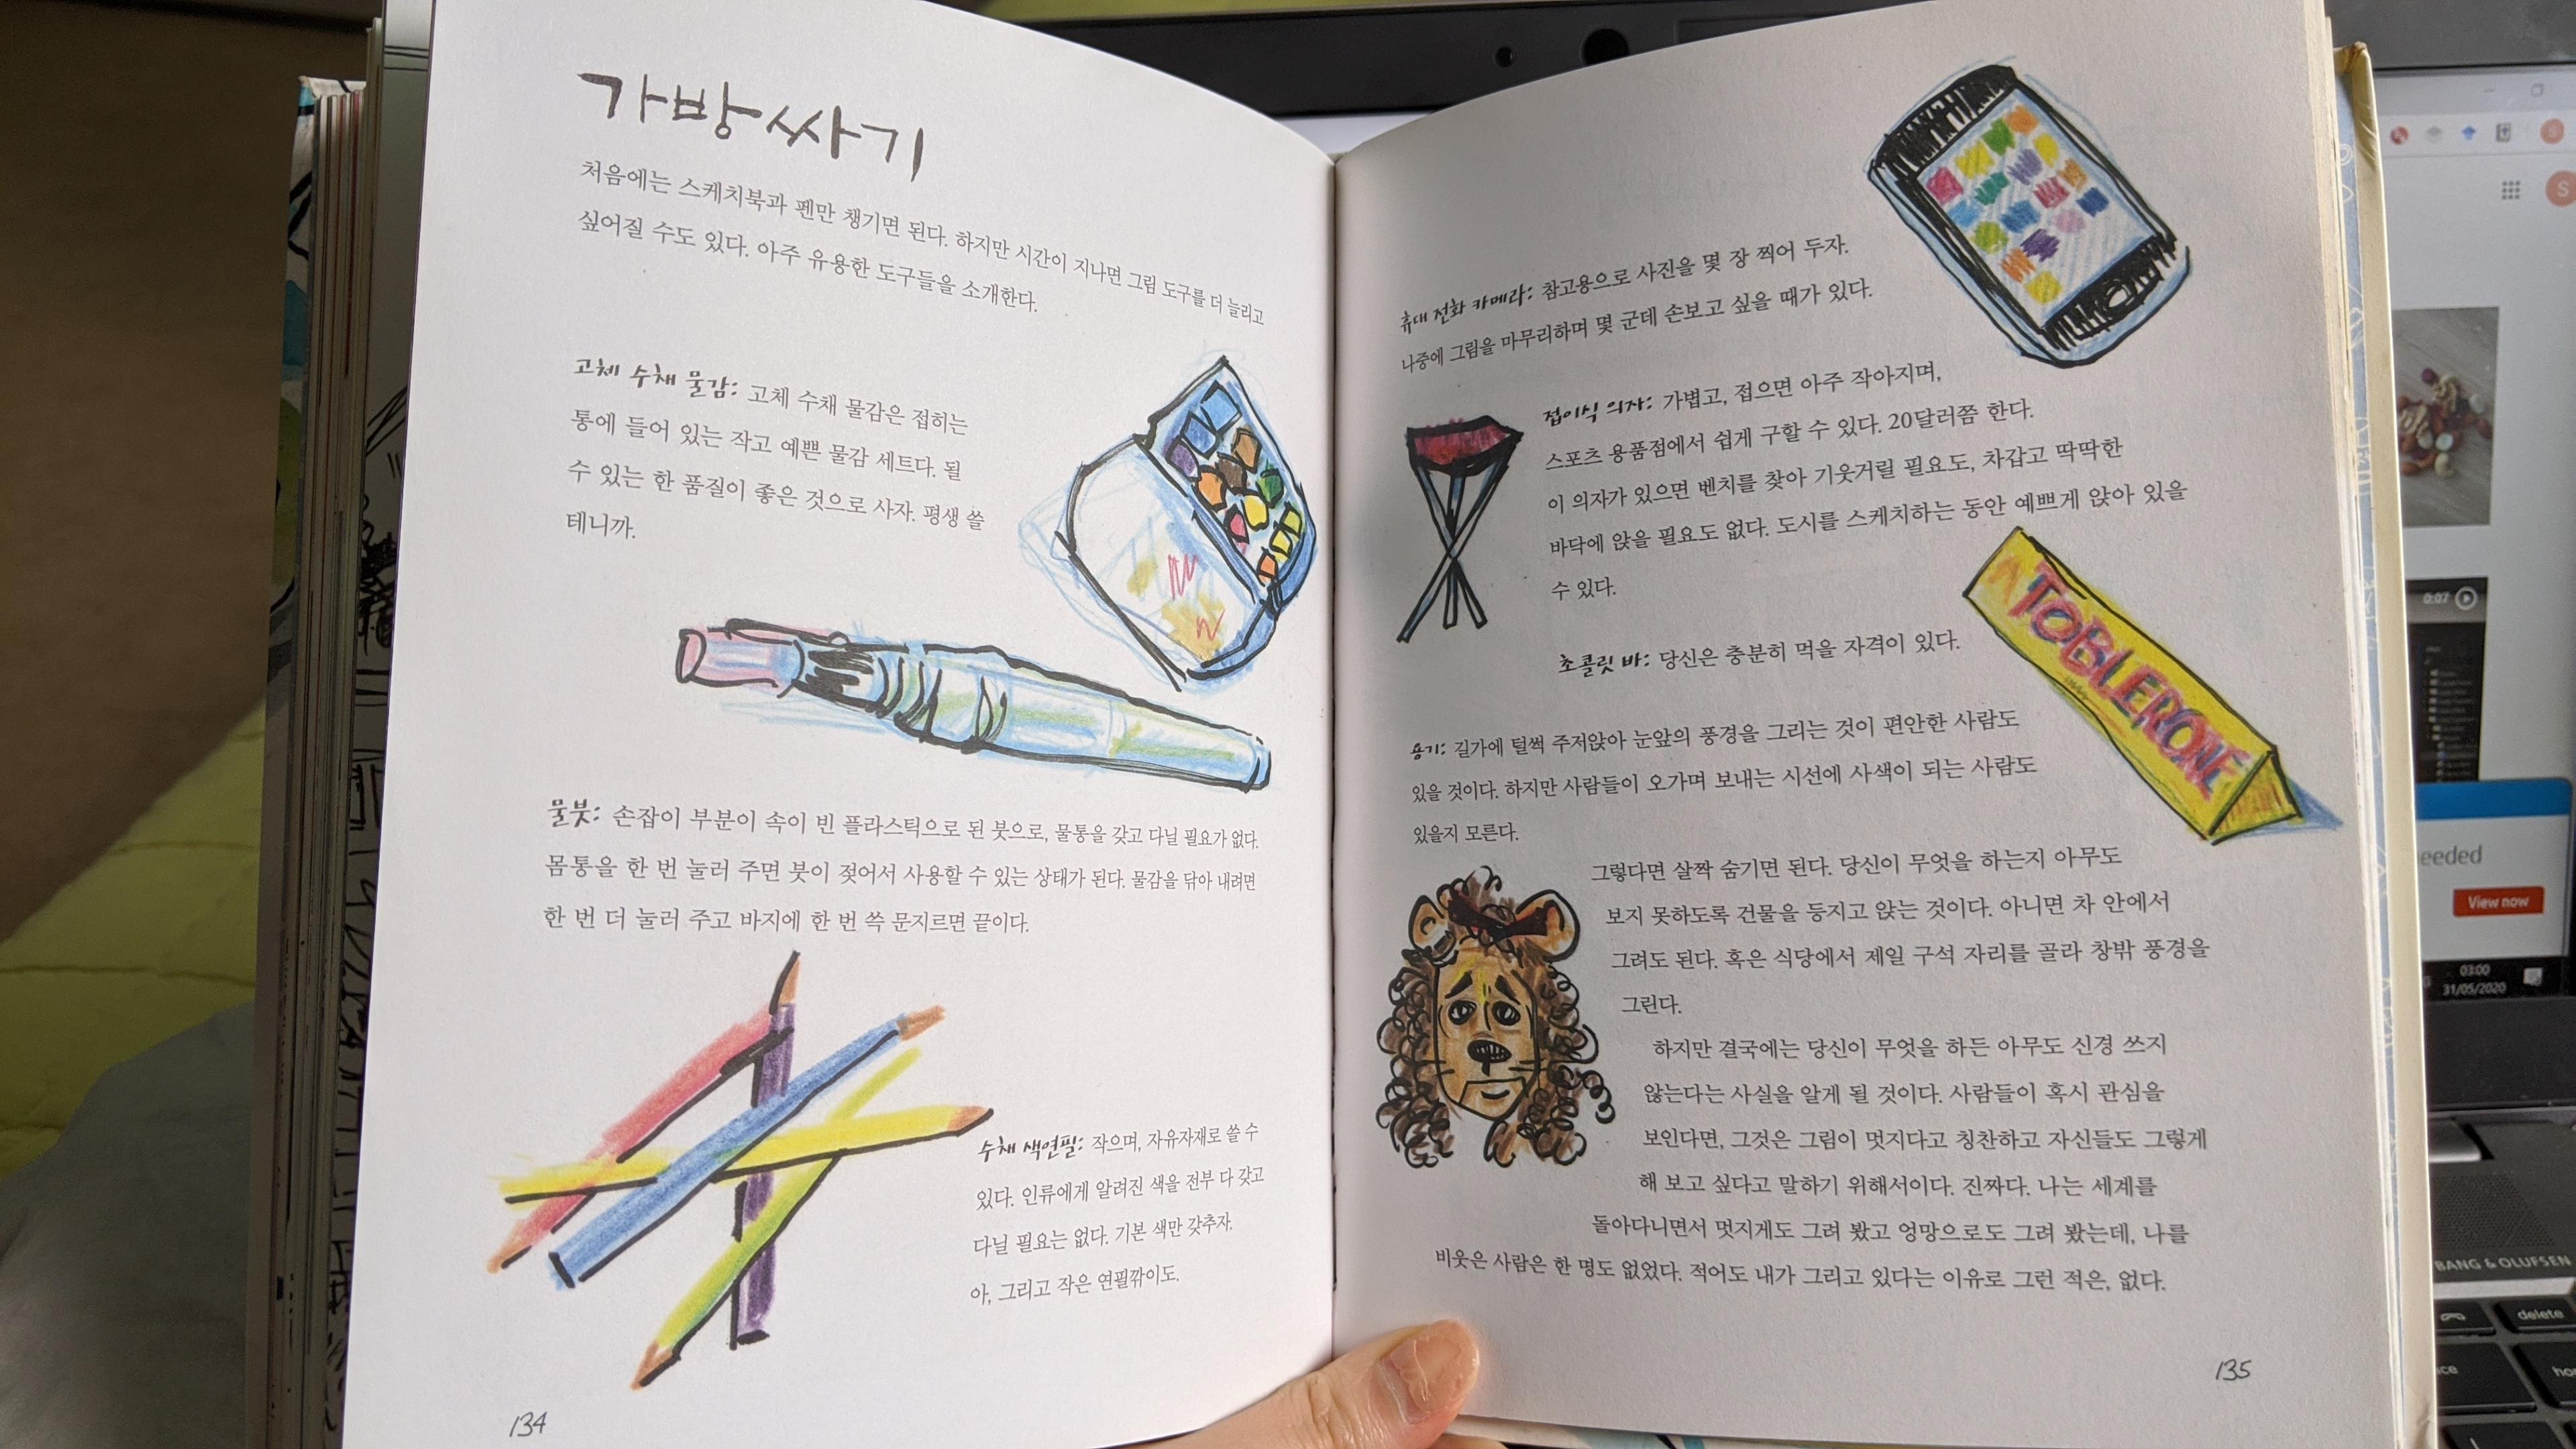 가방 싸기
처음에는 스케치북과 펜만 챙기면 된다. 하지만 시간이 지나면 그림 도구를 더 늘리고
싶어질 수도 있다. 아주 유용한 도구들을 소개한다.
고체 수채 물감: 고체 수채 물감은 접히는
통에 들어 있는 작고 예쁜 물감 세트다. 될
수 있는 한 품질이 좋은 것으로 사자. 평생 쓸
테니까.
물붓: 손잡이 부분이 속이 빈 플라스틱으로 된 붓으로, 물통을 갖고 다닐 필요가 없다.
몸통을 한 번 눌러 주면 붓이 젖어서 사용할 수 있는 상태가 된다. 물감을 닦아 내려면
한 번 더 눌러 주고 바지에 한 번 쓱 문지르면 끝이다.
수채 색연필: 작으며, 자유자재로 쓸 수
있다. 인류에게 알려진 색을 전부 다 갖고
다닐 필요는 없다. 기본 색만 갖추자.
아, 그리고 작은 연필깎이도.
134
휴대 전화 카메라: 참고용으로 사진을 몇 장 찍어 두자.
나중에 그림을 마무리하며 몇 군데 손보고 싶을 때가 있다.
접이식 의자: 가볍고, 접으면 아주 작아지며,
스포츠 용품점에서 쉽게 구할 수 있다. 20달러쯤 한다.
이 의자가 있으면 벤치를 찾아 기웃거릴 필요도, 차갑고 딱딱한
바닥에 앉을 필요도 없다. 도시를 스케치하는 동안 예쁘게 앉아 있을
수 있다.
TOBLERONE
초콜릿 바: 당신은 충분히 먹을 자격이 있다.
용기: 길가에 털썩 주저앉아 눈앞의 풍경을 그리는 것이 편안한 사람도
있을 것이다. 하지만 사람들이 오가며 보내는 시선에 사색이 되는 사람도
있을지 모른다.
그렇다면 살짝 숨기면 된다. 당신이 무엇을 하는지 아무도
보지 못하도록 건물을 등지고 앉는 것이다. 아니면 차 안에서
그려도 된다. 혹은 식당에서 제일 구석 자리를 골라 창밖 풍경을
그린다.
하지만 결국에는 당신이 무엇을 하든 아무도 신경 쓰지
않는다는 사실을 알게 될 것이다. 사람들이 혹시 관심을
보인다면, 그것은 그림이 멋지다고 칭찬하고 자신들도 그렇게
해 보고 싶다고 말하기 위해서이다. 진짜다. 나는 세계를
돌아다니면서 멋지게도 그려 봤고 엉망으로도 그려 봤는데, 나를
비웃은 사람은 한 명도 없었다. 적어도 내가 그리고 있다는 이유로 그런 적은, 없다.
135
S
S
0:07
eeded
View now
03:00
31/05/2020
BANG & OLUFSEN
delete